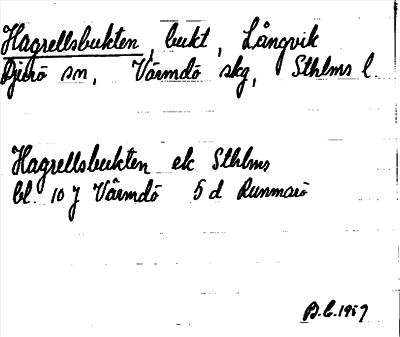 Hagrellsbukten, bukt, Långvik
Djurö sn, Värmdö skg, Sthlms l.
Hagrellsbukten ek Sthlms
bl. 10 J Värmdö 5 d Runmarö
B.C. 1957